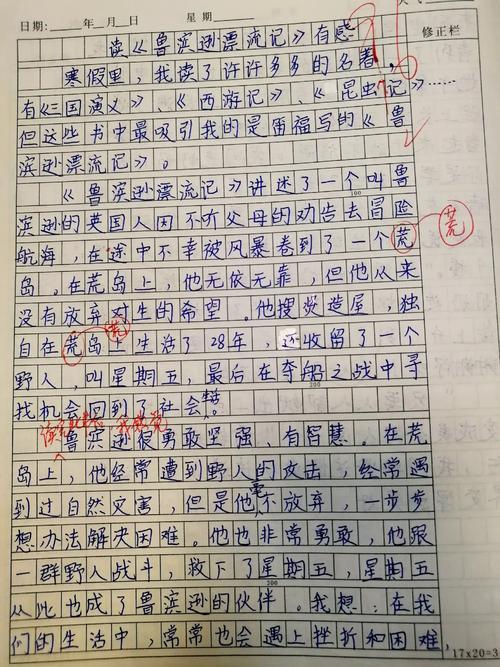 日期：＿＿年＿月＿日 星期 修正栏
读《鲁滨逊漂流记》有感
寒假里，我读了许许多多的名著，
有《三国演义》、《西游记》、《昆虫记》……
但这些书中最吸引我的是雷福写的《鲁
滨逊漂流记》。
《鲁滨逊漂流记》讲述了一个叫鲁
100
滨逊的英国人因不听父母的劝告去冒险
航海，在途中不幸被风暴卷到了一个荒
荒
岛。在荒岛上，他无依无靠，但他从来
没有放弃对生的希望。他搜炎造屋，独
荒
自在荒岛上生活了28年，还收留了一个
野人，叫星期五，最后在夺船之战中寻
200
找机会回到了社会。
鲁滨逊很勇敢坚强、有智慧。在荒
岛上，他经常遭到野人的攻击，经常遇
到过自然灾害，但是他毫不放弃，一步步
想办法解决困难。他也非常勇敢，他跟
一群野人战斗，救下了星期五，星期五
300
从此也成了鲁滨逊的伙伴。我想：在我
们的生活中，常常也会遇上挫折和困难，
17×20=3